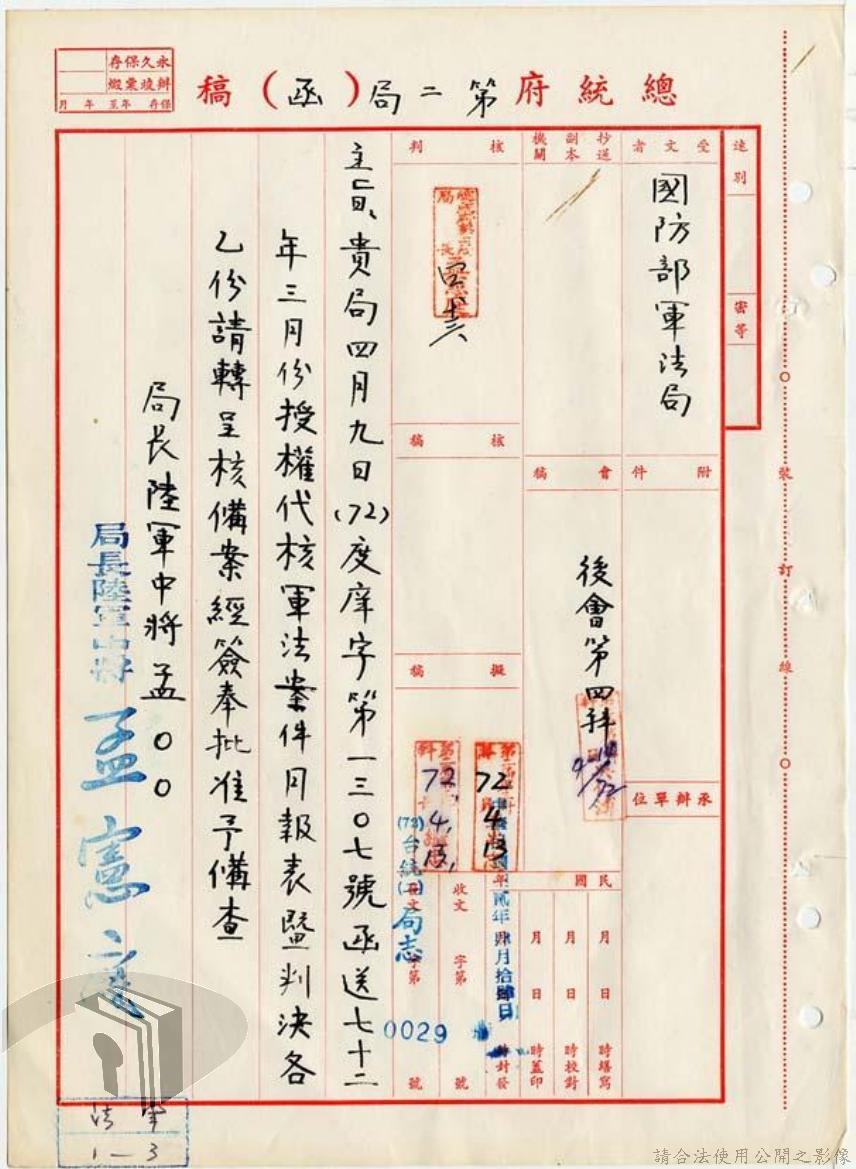 總統府第二局(函)稿
永久保存
辦竣彙繳
保存 年至 年 月
速別
密等
受文者
國防部軍法局
抄送副本機關
附件
會稿
後會第四科
承辦單位
核判
核稿
擬稿
72.4.13.
72 4 13
民國
月 日 時繕寫
月 日 時校對
月 日 時蓋印
貳年肆月拾肆日 時封發
收文 字第 號
發文 字第 號
(72)台統(二)局志
0029
主旨、貴局四月九日(72)度庠字第一三〇七號函送七十二
年三月份授權代核軍法案件月報表暨判決各
乙份請轉呈核備案經簽奉批准予備查
局長陸軍中將孟〇〇
局長陸軍中將孟憲庭
裝訂線
法 軍
1—3
請合法使用公開之影像